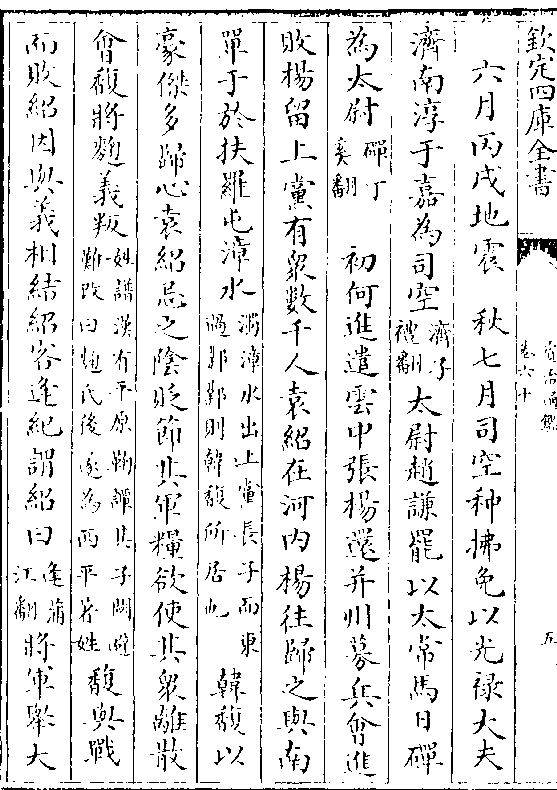 欽定四庫全書
資治通鑑
卷六十
五
六月丙戌地震　秋七月司空种拂免以光禄大夫
濟南淳于嘉為司空濟子禮翻太尉趙謙罷以太常馬日磾
為太尉磾丁奚翻　初何進遣雲中張楊還并州募兵會進
敗楊留上黨有衆數千人袁紹在河内楊往歸之與南
單于於扶羅屯漳水濁漳水出上黨長子而東過鄴鄴則韓馥所居也　韓馥以
豪傑多歸心袁紹忌之陰貶節其軍糧欲使其衆離散
會馥將麴義叛姓譜漢有平原鞠譚其子閟避難改曰麴氏後遂為西平著姓　馥與戰
而敗紹因與義相結紹客逄紀謂紹曰逄蒲江翻將軍舉大